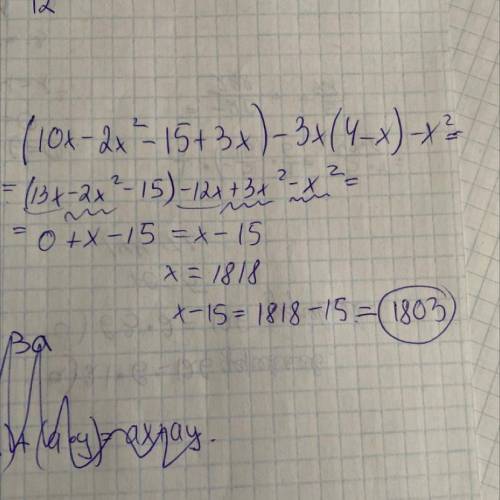 12
(10x-2x²-15+3x)-3x(4-x)-x²=
=(13x-2x²-15)-12x+3x²-x²=
=0+x-15=x-15
x=1818
x-15=1818-15=1803
=ax+ay.